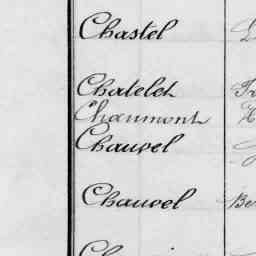 Chastel
Chatelet
Chaumont
Chauvel
Chauvel Be